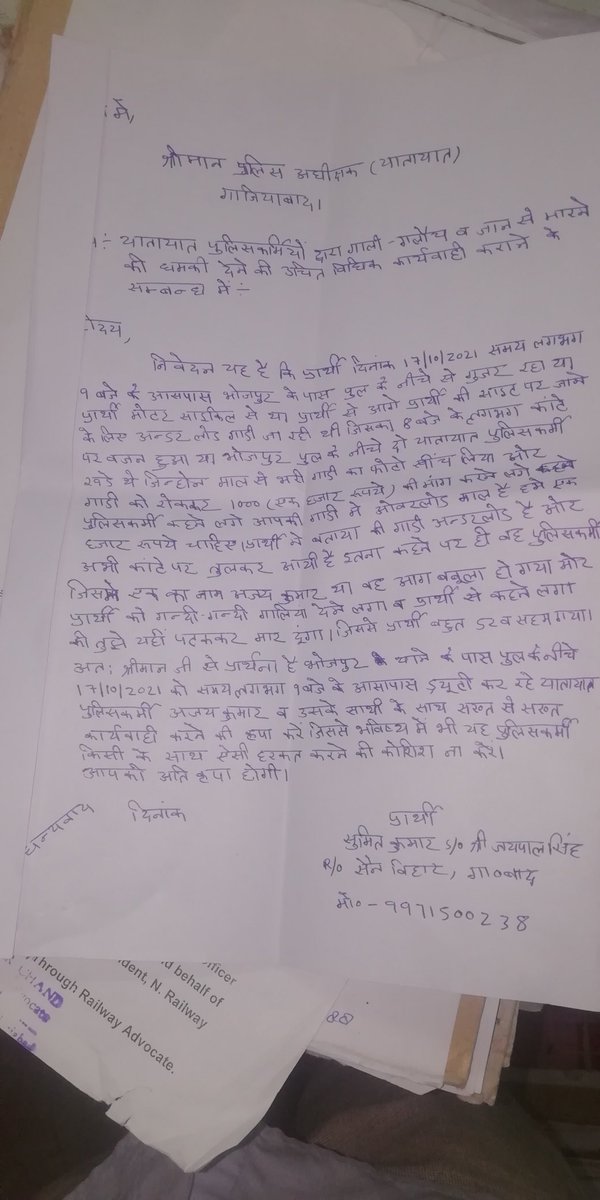 में,
श्रीमान पुलिस अधीक्षक (यातायात)
गाजियाबाद।
:- यातायात पुलिसकर्मियों द्वारा गाली-गलौच व जान से मारने
की धमकी देने की उचित विधिक कार्यवाही कराने के
सम्बन्ध में :-
होदय,
निवेदन यह है कि प्रार्थी दिनांक 17/10/2021 समय लगभग
9 बजे के आसपास भोजपुर के पास पुल के नीचे से गुजर रहा था
प्रार्थी मोटर साईकिल से था प्रार्थी से आगे प्रार्थी की साइट पर जाने
के लिए अन्डर लोड गाडी जा रही थी जिसका 8 बजे के लगभग कांटे
पर वजन हुआ था भोजपुर पुल के नीचे दो यातायात पुलिसकर्मी
खडे थे जिन्होने माल से भरी गाडी का फोटो खींच लिया और
गाडी को रोककर 1000 (एक हजार रूपये) की मांग करने लगे
पुलिसकर्मी कहने लगे आपकी गाडी में ओवरलोड माल है हमे एक
हजार रूपये चाहिए। प्रार्थी ने बताया की गाडी अन्डरलोड है और
अभी कांटे पर तुलकर आयी है इतना कहने पर ही वह पुलिसकर्मी
जिसमे एक का नाम अजय कुमार था वह आग बबूला हो गया और
प्रार्थी को गन्दी-गन्दी गालिया देने लगा व प्रार्थी से कहने लगा
की तुझे यहीं पटककर मार दूंगा। जिससे प्रार्थी बहुत डर व सहम गया।
अतः श्रीमान जी से प्रार्थना है भोजपुर थाने के पास पुल के नीचे
17/10/2021 को समय लगभग 9 बजे के आसापास ड्यूटी कर रहे यातायात
पुलिसकर्मी अजय कुमार व उसके साथी के साथ सख्त से सख्त
कार्यवाही करने की कृपा करें जिससे भविष्य में भी यह पुलिसकर्मी
किसी के साथ ऐसी हरकत करने की कोशिश ना करे।
आपकी अति कृपा होगी।
धन्यवाद
दिनांक
प्रार्थी
सुमित कुमार S/o श्री जयपाल सिंह
R/o सैन विहार, गा०बाद
मो०- 9971500238
officer
nd behalf of
dent, N. Railway
Through Railway Advocate.
CHAND